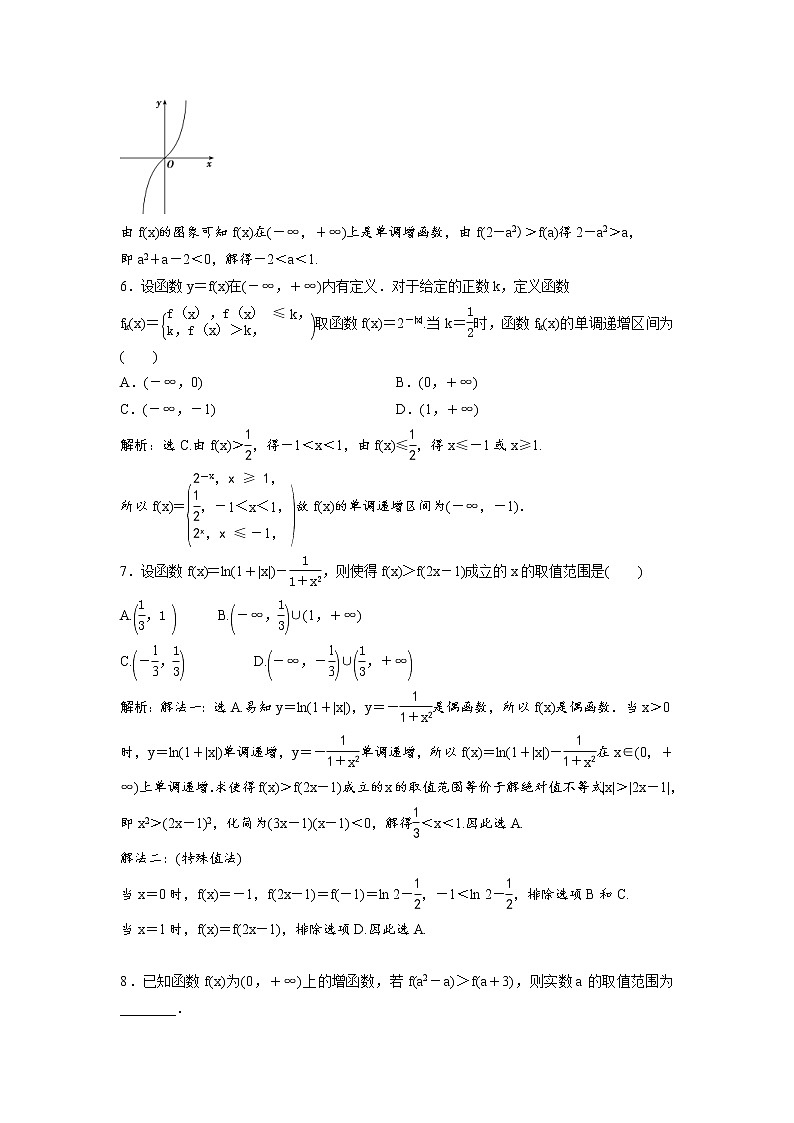 y
O
x
由 f(x)的图象可知 f(x)在(－∞，＋∞)上是单调增函数，由 f(2－a²)＞f(a)得 2－a²＞a，
即 a²＋a－2＜0，解得－2＜a＜1.
6．设函数 y＝f(x)在(－∞，＋∞)内有定义．对于给定的正数 k，定义函数
fₖ(x)＝{f（x），f（x）≤k，
k，f（x）＞k，)取函数 f(x)＝2^(－|x|).当 k＝1/2时，函数 fₖ(x)的单调递增区间为
(　　)
A．(－∞，0)　　B．(0，＋∞)
C．(－∞，－1)　　D．(1，＋∞)
解析：选 C.由 f(x)＞1/2，得－1＜x＜1，由 f(x)≤1/2，得 x≤－1 或 x≥1.
2^(－x)，x ≥ 1，
所以 f(x)＝{1/2，－1＜x＜1，)故 f(x)的单调递增区间为(－∞，－1)．
2^x，x ≤－1，
7．设函数 f(x)＝ln(1＋|x|)－1/(1＋x²)，则使得 f(x)＞f(2x－1)成立的 x 的取值范围是(　　)
A.(1/3，1)　　B.(－∞，1/3)∪(1，＋∞)
C.(－1/3，1/3)　　D.(－∞，－1/3)∪(1/3，＋∞)
解析：解法一：选 A.易知 y＝ln(1＋|x|)，y＝－1/(1＋x²)是偶函数，所以 f(x)是偶函数．当 x＞0
时，y＝ln(1＋|x|)单调递增，y＝－1/(1＋x²)单调递增，所以 f(x)＝ln(1＋|x|)－1/(1＋x²)在 x∈(0，＋
∞)上单调递增.求使得 f(x)＞f(2x－1)成立的 x 的取值范围等价于解绝对值不等式|x|＞|2x－1|，
即 x²＞(2x－1)²，化简为(3x－1)(x－1)＜0，解得1/3＜x＜1.因此选 A.
解法二：(特殊值法)
当 x＝0 时，f(x)＝－1，f(2x－1)＝f(－1)＝ln 2－1/2，－1＜ln 2－1/2，排除选项 B 和 C.
当 x＝1 时，f(x)＝f(2x－1)，排除选项 D.因此选 A.
8．已知函数 f(x)为(0，＋∞)上的增函数，若 f(a²－a)＞f(a＋3)，则实数 a 的取值范围为
________．